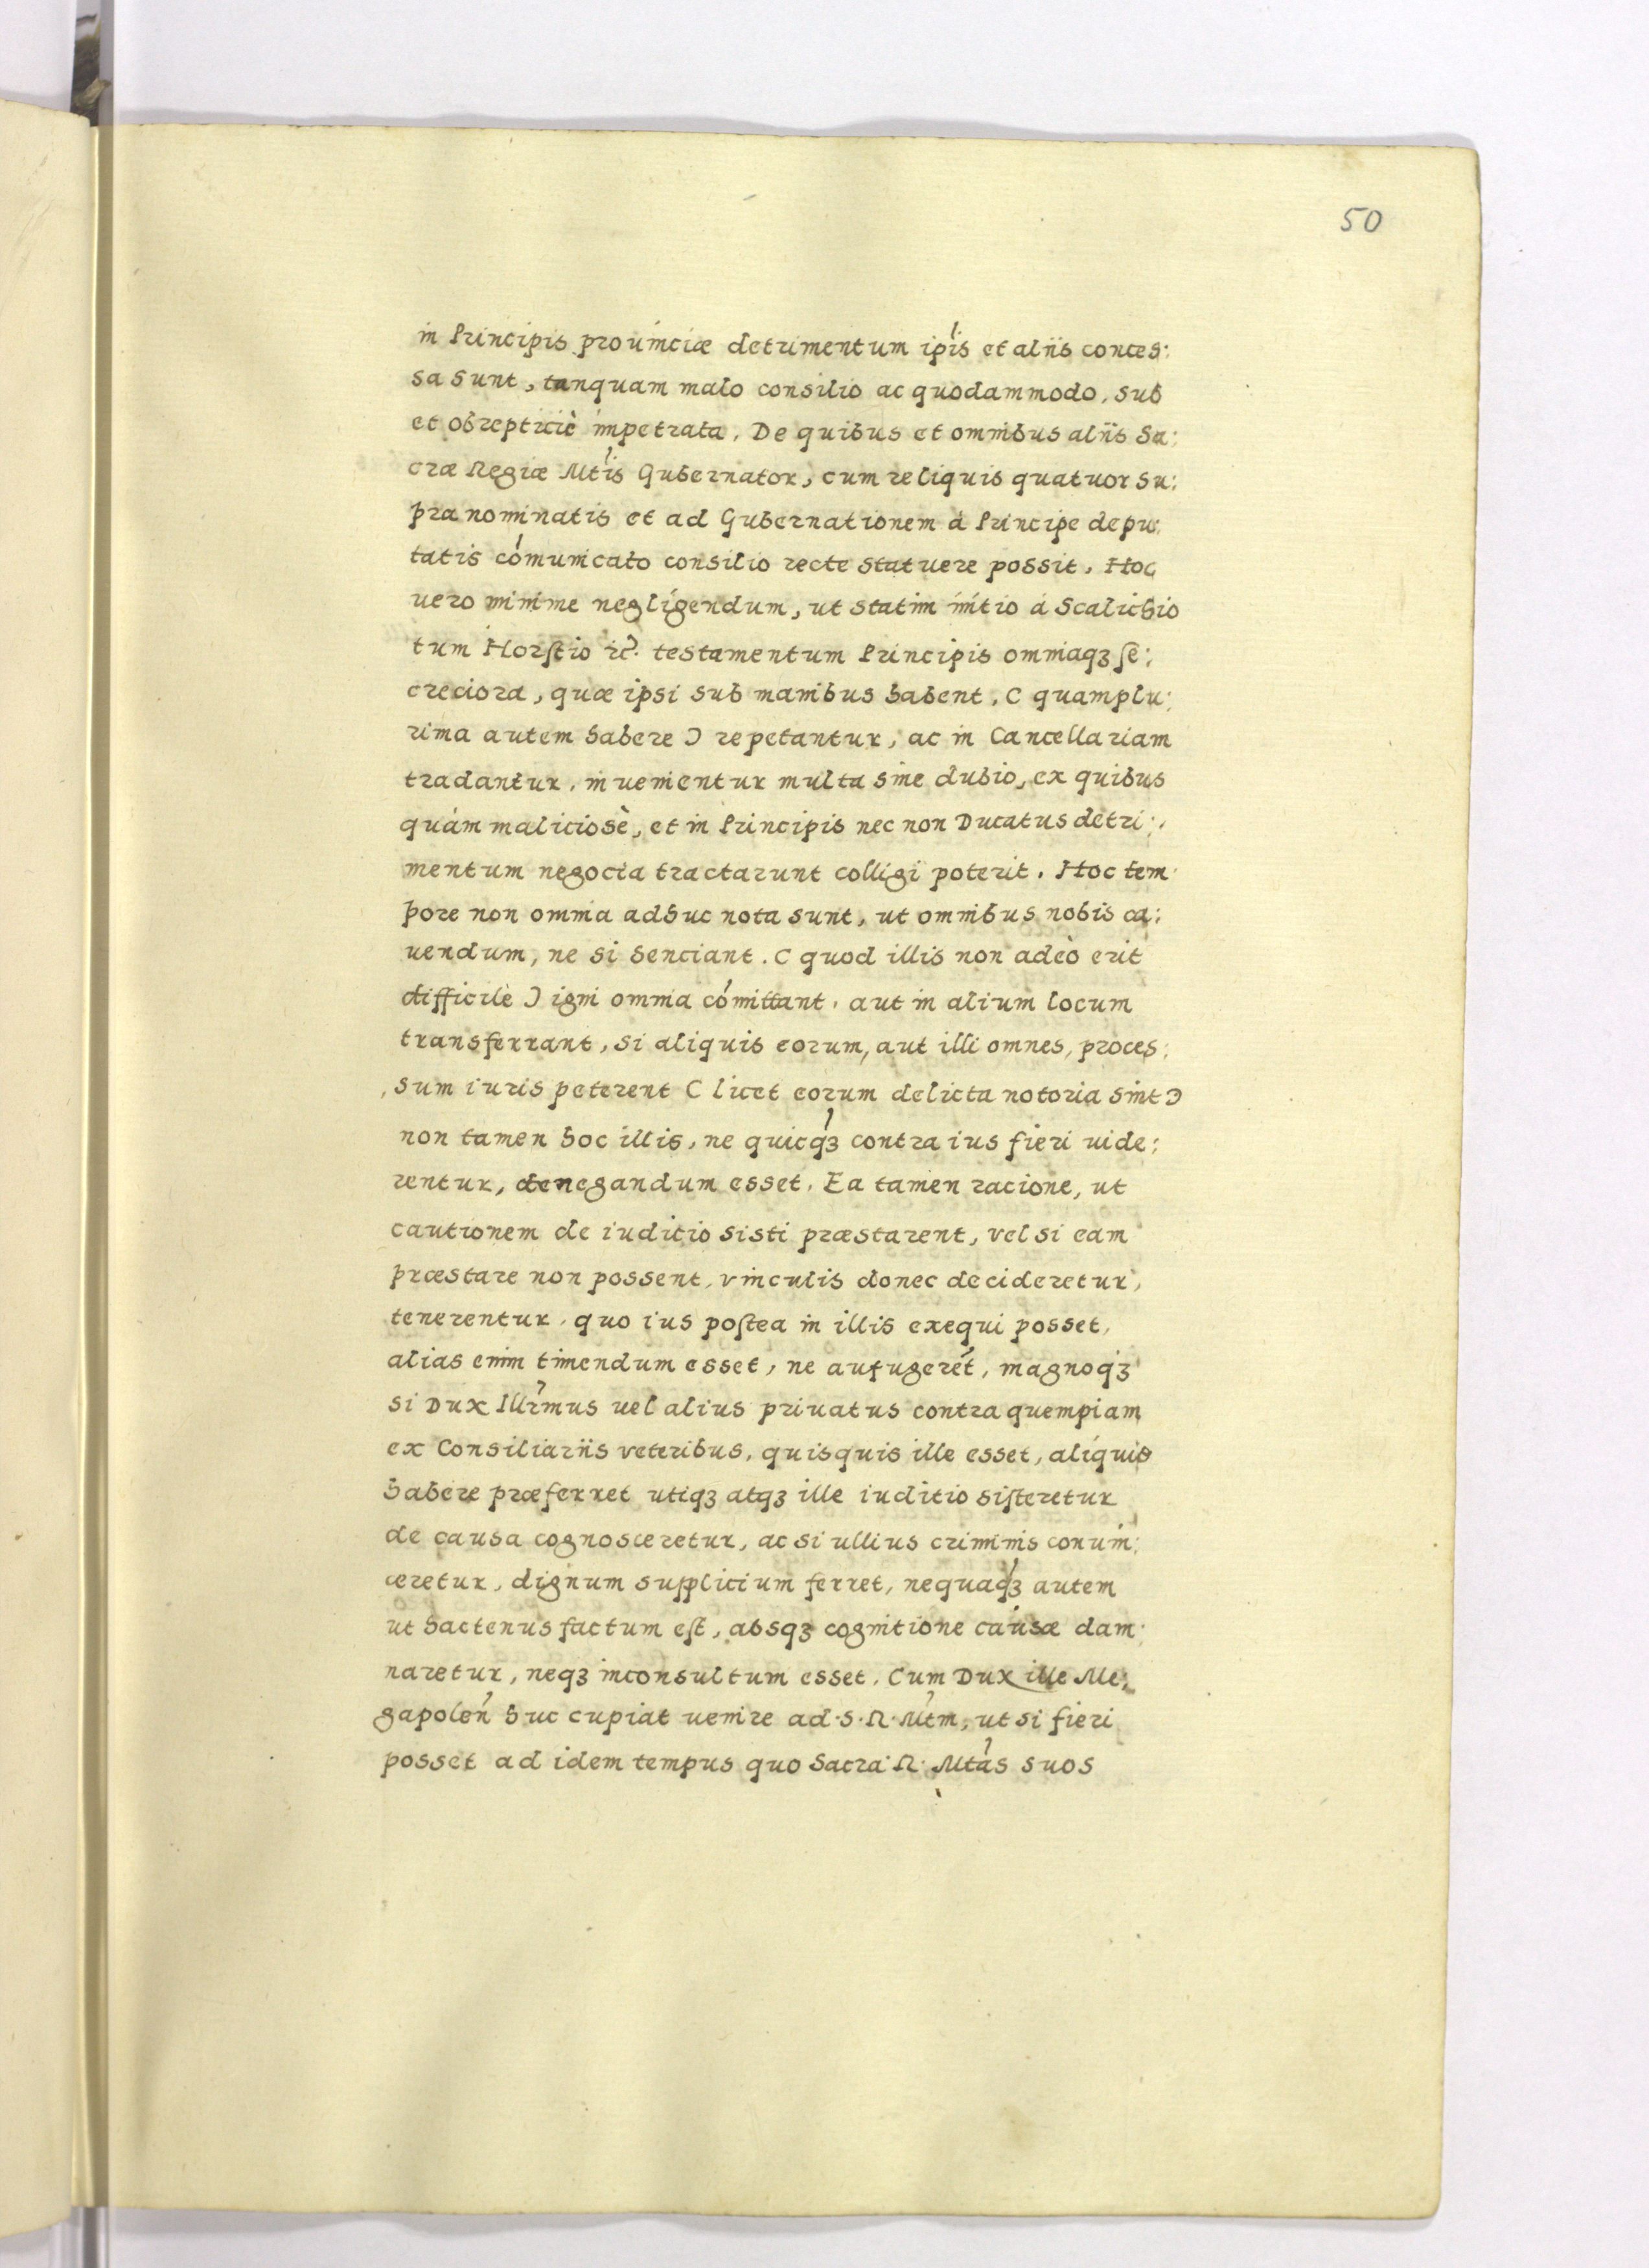 50
in Principis prouinciæ detrimentum ip̃is et aliis conces:
sa sunt, tanquam malo consilio ac quodammodo, sub
et obrepticiè impetrata. De quibus et omnibus aliis Sa:
cræ Regiæ Mt̃is Gubernator, cum reliquis quatuor su:
pra nominatis et ad Gubernationem à Principe depu:
tatis com̃unicato consilio recte statuere possit. Hoc
uero minime negligendum, ut statim initio à Scalichio
tum Horstio ꝛc̃. testamentum Principis omniaqꝫ se:
creciora, quæ ipsi sub manibus habent, ( quamplu:
rima autem habere ) repetantur, ac in Cancellariam
tradantur, inuenientur multa sine dubio, ex quibus
quàm maliciosè, et in Principis nec non Ducatus detri:
mentum negocia tractarunt colligi poterit. Hoc tem
pore non omnia adhuc nota sunt, ut omnibus nobis ca:
uendum, ne si senciant. ( quod illis non adeò erit
difficilè ) igni omnia com̃ittant, aut in alium locum
transferrant, si aliquis eorum, aut illi omnes, proces:
sum iuris peterent ( licet eorum delicta notoria sint )
non tamen hoc illis, ne quicq̃ꝫ contra ius fieri uide:
rentur, denegandum esset. Ea tamen racione, ut
cautionem de iuditio sisti præstarent, vel si eam
præstare non possent, vinculis donec decideretur,
tenerentur, quo ius postea in illis exequi posset,
alias enim timendum esset, ne aufugerẽt, magnoqꝫ
si Dux Illr̃mus uel alius priuatus contra quempiam
ex Consiliariis veteribus, quisquis ille esset, aliquis
habere præferret utiqꝫ atqꝫ ille iuditio sisteretur
de causa cognosceretur, ac si ullius criminis conuin:
ceretur, dignum supplicium ferret, nequaq̃ꝫ autem
ut hactenus factum est, absqꝫ cognitione causæ dam:
naretur, neqꝫ inconsultum esset. Cum Dux ille Me:
gapoleñ huc cupiat uenire ad S. R. Mt̃m, ut si fieri
posset ad idem tempus quo Sacra R. Mtãs suos